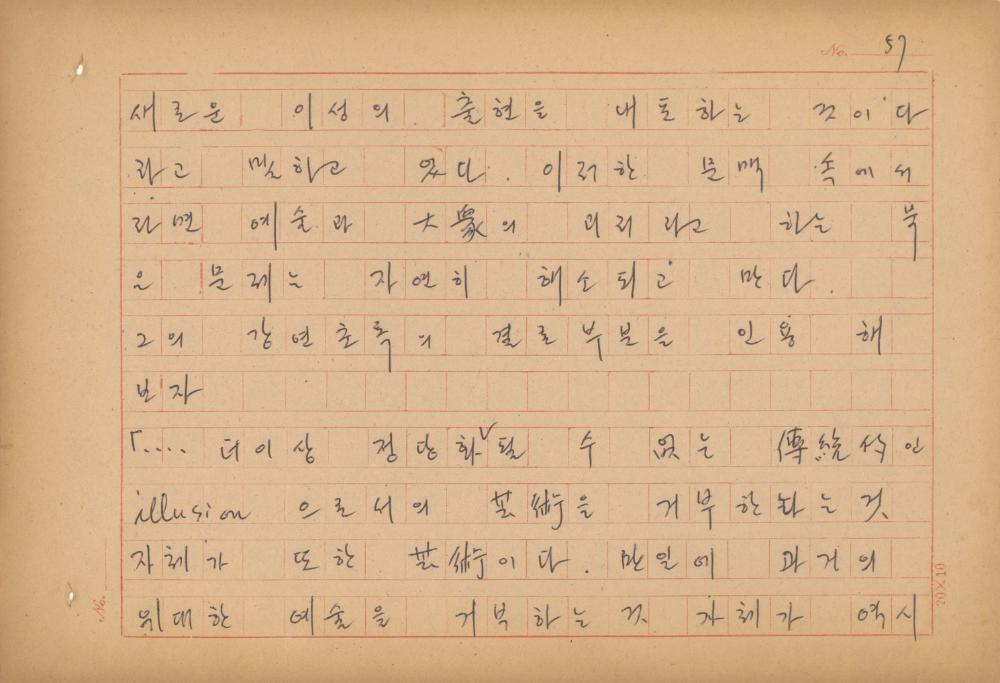 No. 57
새로운 이성의 출현을 내포하는 것이다
라고 말하고 있다. 이러한 문맥 속에서
라면 예술과 大衆의 괴리라고 하는 묵
은 문제는 자연히 해소되고 만다.
그의 강연초록의 결론부분을 인용해
보자
「.... 더이상 정당화될 수 없는 傳統的인
illusion 으로서의 芸術을 거부한다는 것
자체가 또한 芸術이다. 만일에 과거의
위대한 예술을 거부하는 것 자체가 역시
No.
20×10